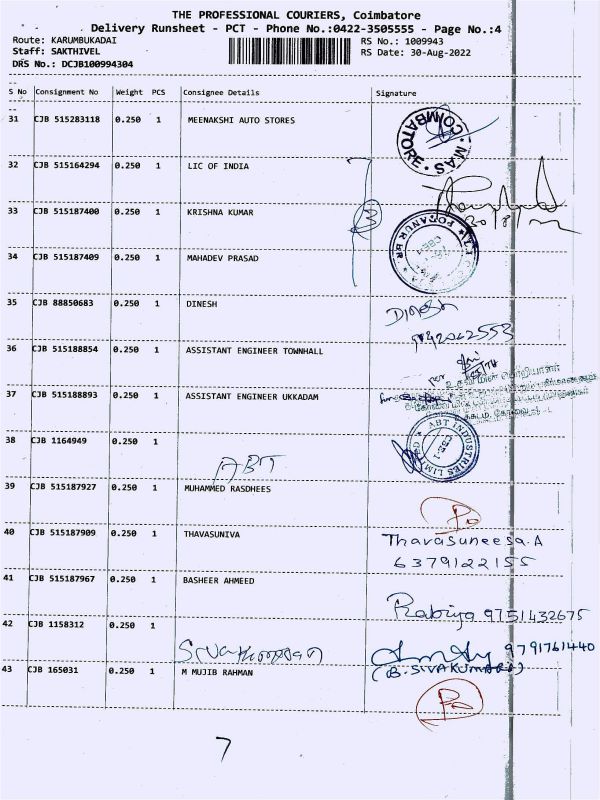 THE PROFESSIONAL COURIERS, Coimbatore
Delivery Runsheet - PCT - Phone No.:0422-3505555 - Page No.:4
Route: KARUMBUKADAI RS No.: 1009943
Staff: SAKTHIVEL RS Date: 30-Aug-2022
DRS No.: DCJB100994304
S No Consignment No Weight PCS Consignee Details Signature
31 CJB 515283118 0.250 1 MEENAKSHI AUTO STORES
COIMBATORE
32 CJB 515164294 0.250 1 LIC OF INDIA
33 CJB 515187400 0.250 1 KRISHNA KUMAR
34 CJB 515187409 0.250 1 MAHADEV PRASAD
35 CJB 88850683 0.250 1 DINESH
Dinesh
36 CJB 515188854 0.250 1 ASSISTANT ENGINEER TOWNHALL
37 CJB 515188893 0.250 1 ASSISTANT ENGINEER UKKADAM
38 CJB 1164949 0.250 1
ABT
ABT INDUSTRIES LIMITED
CBE-1
39 CJB 515187927 0.250 1 MUHAMMED RASDHEES
40 CJB 515187909 0.250 1 THAVASUNIVA
Thavasuneesa.A
6379122155
41 CJB 515187967 0.250 1 BASHEER AHMEED
Rabiya 9751432675
42 CJB 1158312 0.250 1
9791761440
(B.SIVAKUMAR)
43 CJB 165031 0.250 1 M MUJIB RAHMAN
7